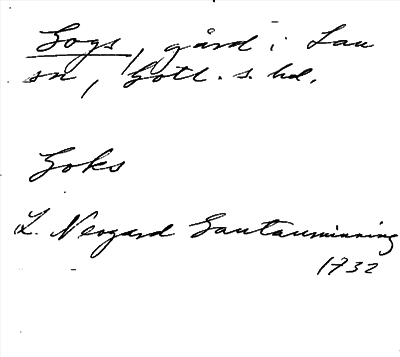 Gogs, gård i Lau
sn, Gotl. s. hd.
Goks
L. Neogard Gautauminning
1732